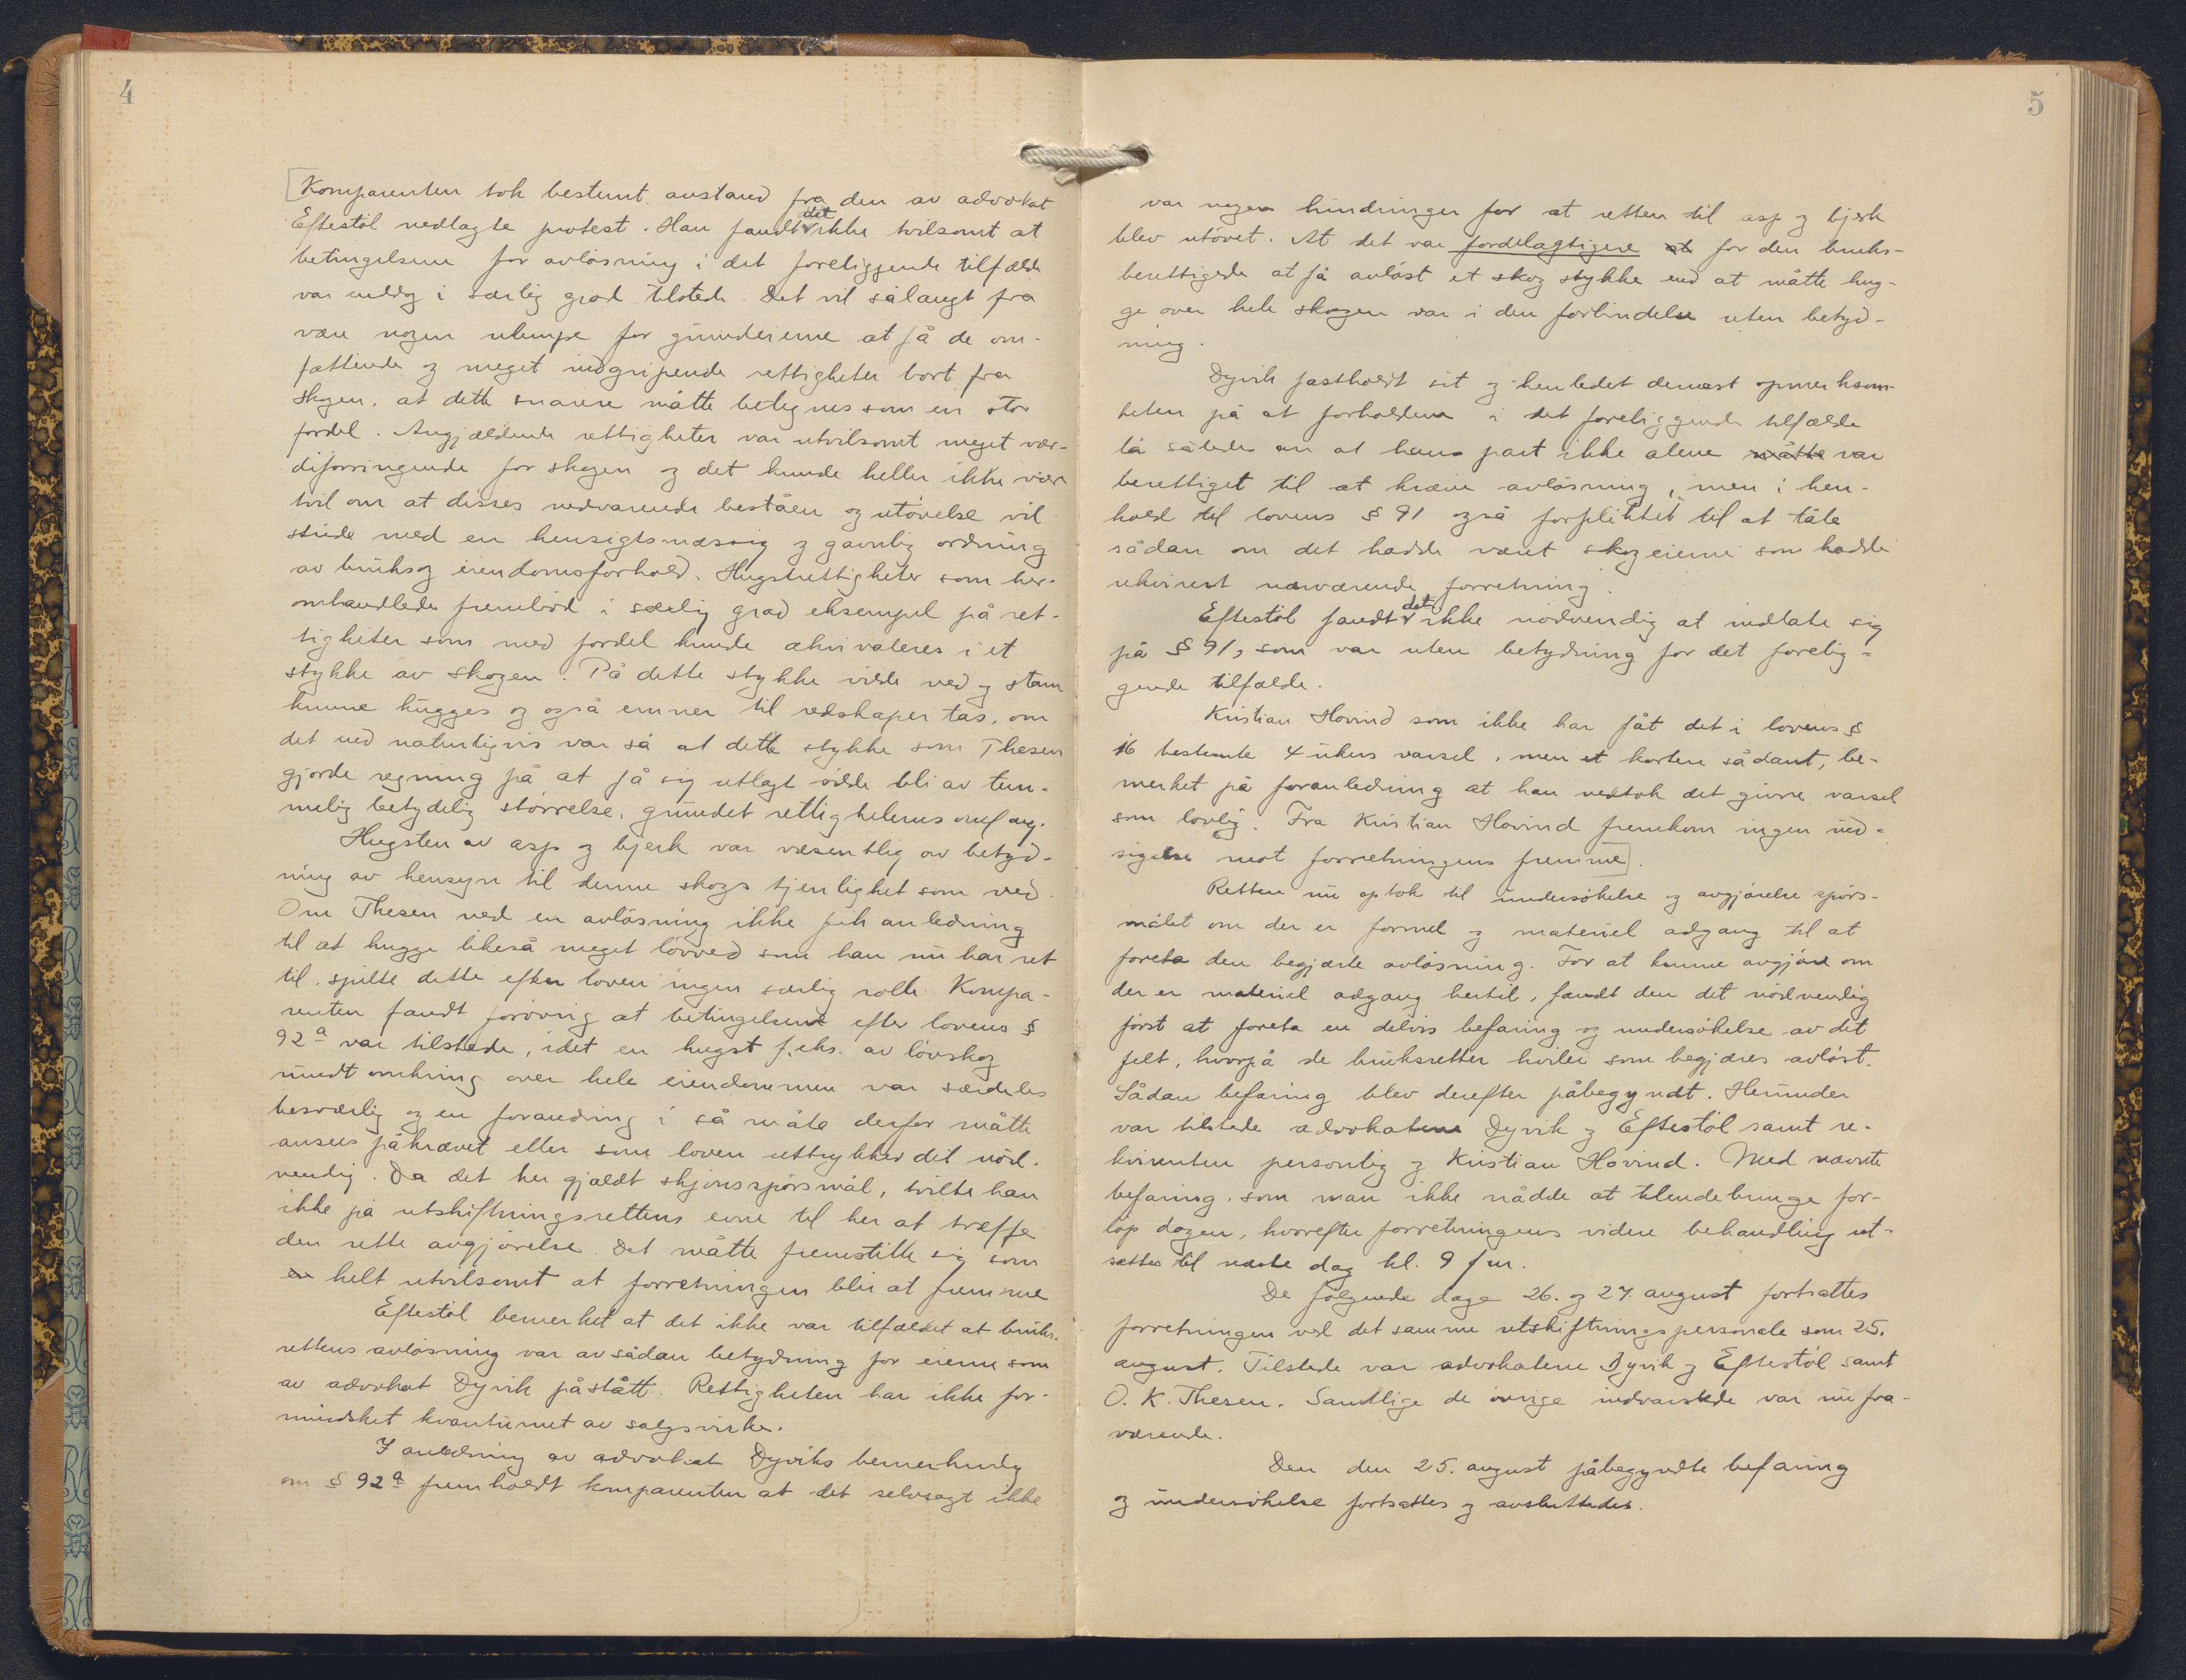 4
[Komparenten tok bestemt avstand fra den av advokat
Eftestöl nedlagte protest. Han fandt det ikke tvilsomt at
betingelsene for avlösning i det foreliggende tilfælde
var endog i særlig grad tilstede. Det vil sålangt fra
være nogen ulempe for grundeierne at få de om-
fattende og meget indgripende rettigheter bort fra
skogen, at dette snarere måtte betegnes som en stor
fordel. Angjældende rettigheter var utvilsomt meget vær-
diforringende for skogen og det kunde heller ikke være
tvil om at disses vedvarende beståen og utövelse vil
stride med en hensigtsmæssig og gavnlig ordning
av bruks og eiendomsforhold. Hugstrettigheter som her-
omhandlede frembö́d i særlig grad eksempel på ret-
tigheter som med fordel kunde ækvivaleres i et
stykke av skogen. På dette stykke vilde ved og stam
kunne hugges og også emner til redskaper tas, om
det end naturligvis var så at dette stykke som Thesen
gjorde regning på at få sig utlagt vilde bli av tem-
melig betydelig störrelse, grundet rettighetenes omfang.
Hugsten av asp og bjerk var væsentlig av betyd-
ning av hensyn til denne skogs tjenlighet som ved.
Om Thesen ved en avlösning ikke fik anledning
til at hugge likeså meget lövved som han nu har ret
til, spilte dette efter loven ingen særlig rolle. Kompa-
renten fandt forövrig at betingelsene efter lovens §
92a var tilstede, idet en hugst f.eks. av lövskog
rundt omkring over hele eiendommen var særdeles
besværlig og en forandring i så måte derfor måtte
ansees påkrævet eller som loven uttrykker det nöd-
vendig. Da det her gjældt skjönsspörsmål, tvilte han
ikke på utskiftningsrettens evne til her at træffe
den rette avgjörelse. Det måtte fremstille sig som
en helt utvilsomt at forretningen blir at fremme
Eftestöl bemerket at det ikke var tilfældet at bruks-
rettens avlösning var av sådan betydning for eierne som
av advokat Dyvik påstått. Rettigheten har ikke for-
mindsket kvantumet av salgsvirke.
I anledning av advokat Dyviks bemerkning
om § 92a fremholdt komparenten at det selvsagt ikke
5
var nogen hindringer for at retten til asp og bjerk
blev utövet. At det var fordelagtigere at for den bruks-
berettigede at få avlöst et skog stykke end at måtte hug-
ge over hele skogen var i den forbindelse uten betyd-
ning.
Dyvik fastholdt sit og henledet dernæst opmerksom-
heten på at forholdene i det foreliggende tilfælde
lå således an at hans part ikke alene måtte var
berettiget til at kræve avlösning, men i hen-
hold til lovens § 91 også forpliktet til at tåle
sådan om det hadde været skogeierne som hadde
rekvirert nærværende forretning.
Eftestöl fandt det ikke nödvendig at indlate sig
på § 91, som var uten betydning for det forelig-
gende tilfælde.
Kristian Hovind som ikke har fåt det i lovens §
16 bestemte 4 ukers varsel, men et kortere sådant, be-
merket på foranledning at han vedtok det givne varsel
som lovlig. Fra Kristian Hovind fremkom ingen ind-
sigelse mot forretningens fremme].
Retten nu optok til undersökelse og avgjörelse spörs-
målet om der er formel og materiel adgang til at
foreta den begjærte avlösning. For at kunne avgjöre om
der er materiel adgang hertil, fandt den det nödvendig
först at foreta en delvis befaring og undersökelse av det
felt, hvorpå de bruksretter hviler som begjæres avlöst.
Sådan befaring blev derefter påbegyndt. Herunder
var tilstede advokatene Dyvik og Eftestöl samt re-
kvirenten personlig og Kristian Hovind. Med nævnte
befaring, som man ikke nådde at tilendebringe for-
löp dagen, hvorefter forretningens videre behandling ut-
sattes til næste dag kl. 9 fm.
De fölgende dage 26. og 27. august fortsattes
forretningen ved det samme utskiftningspersonale som 25.
august. Tilstede var advokatene Dyvik og Eftestöl samt
O. K. Thesen. Samtlige de övrige indvarslede var nu fra-
værende.
Den den 25. august påbegyndte befaring
og undersökelse fortsattes og avsluttedes.